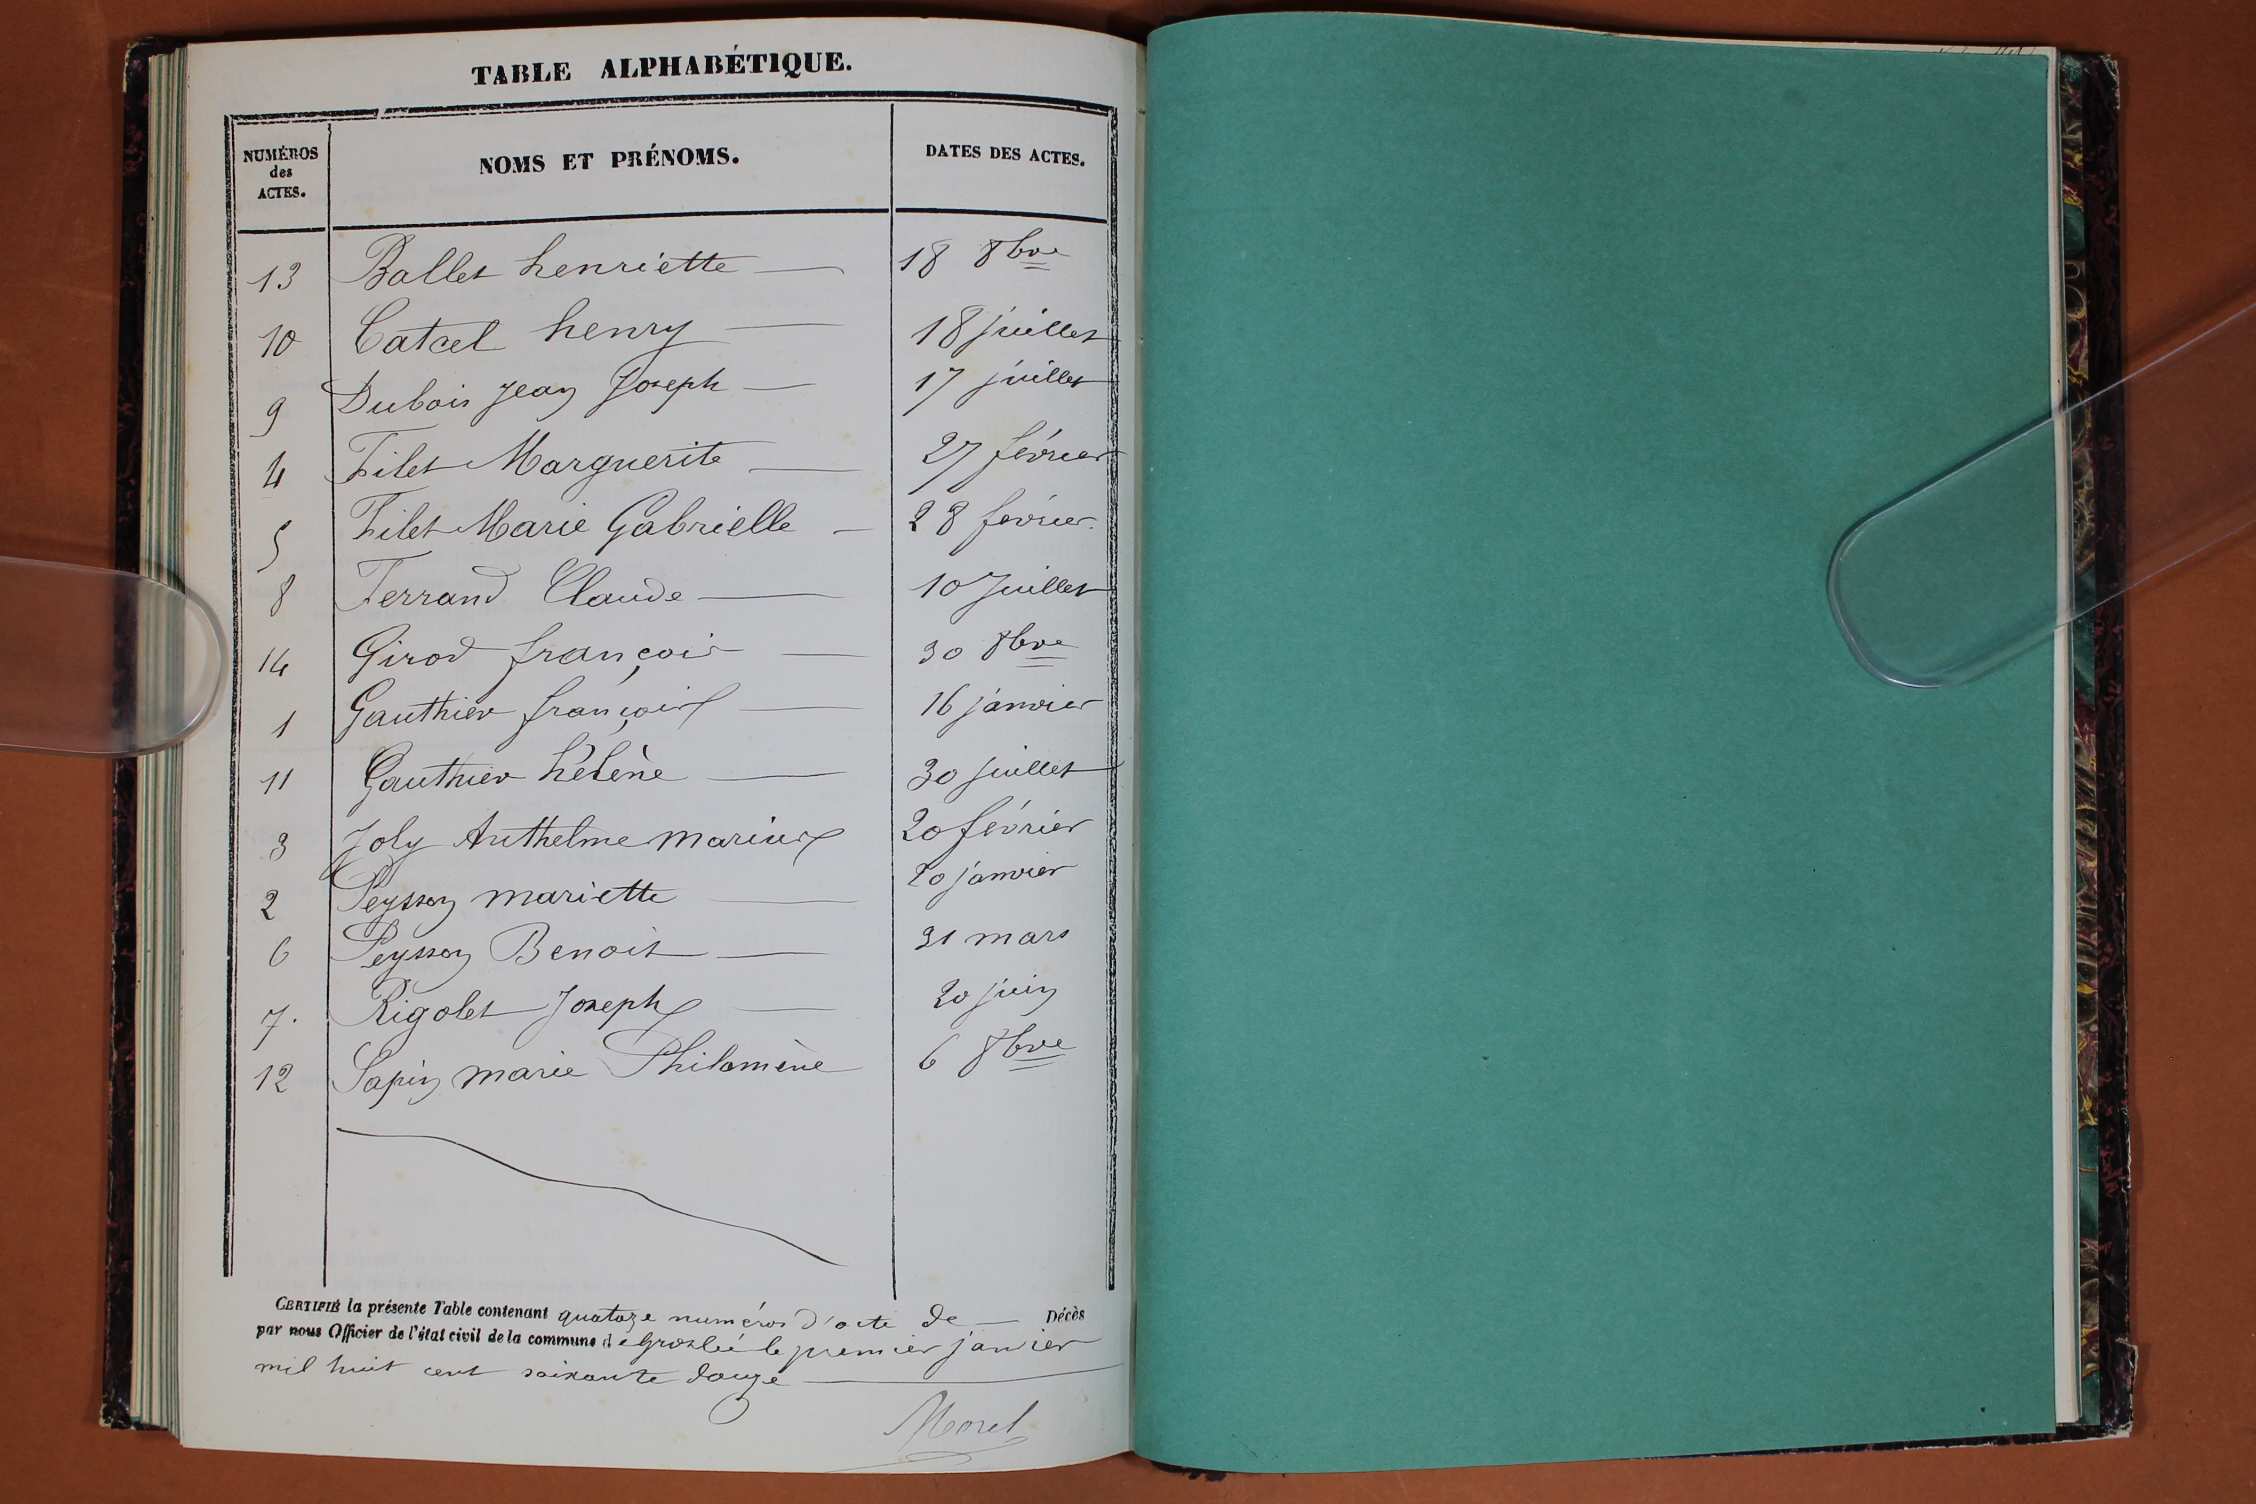 TABLE ALPHABÉTIQUE.
NUMÉROS des ACTES. NOMS ET PRÉNOMS. DATES DES ACTES.
13 Ballet henriette 18 8bre
10 Catcel henry 18 juillet
9 Dubois Jean Joseph 17 juillet
4 Filet Marguerite 27 février
5 Filet Marie Gabrielle 28 février.
8 Ferrand Claude 10 Juillet
14 Girod françois 30 8bre
1 Gauthier françois 16 janvier
11 Gauthier hélène 30 juillet
3 Joly Anthelme marius 20 février
2 Peysson mariette 20 janvier
6 Peysson Benoit 31 mars
7. Rigolet Joseph 20 juin
12 Sapin marie Philomène 6 8bre
CERTIFIÉ la présente Table contenant quatoze numéros d'acte de Décès
par nous Officier de l'état civil de la commune de Groslée le premier janvier
mil huit cent soixante douze
Morel